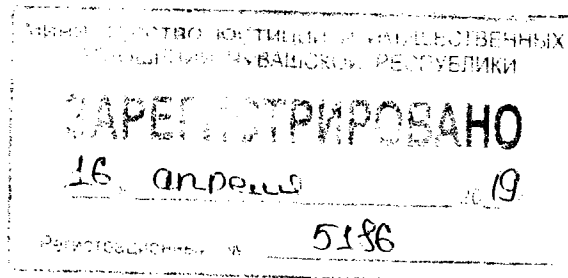 МИНИСТЕРСТВО ЮСТИЦИИ И ИМУЩЕСТВЕННЫХ
ОТНОШЕНИЙ ЧУВАШСКОЙ РЕСПУБЛИКИ
ЗАРЕГИСТРИРОВАНО
16 апреля 2019
Регистрационный № 5186